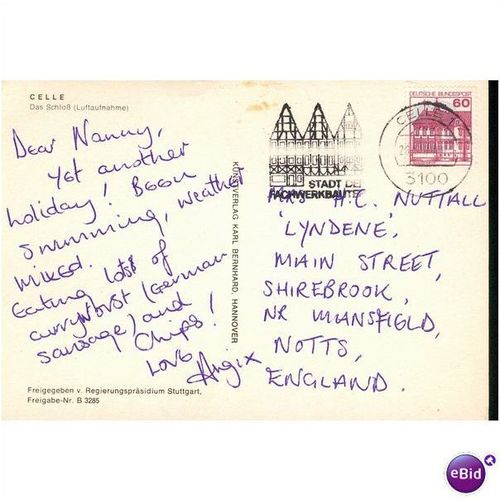 CELLE
Das Schloß (Luftaufnahme)
Dear Nanny,
Yet another
holiday! Been
swimming, weather
mixed.
Eating lots of
currywurst (German
sausage) and
Chips!
Love
Angie x
Freigegeben v. Regierungspräsidium Stuttgart,
Freigabe-Nr. B 3285
KUNSTVERLAG KARL BERNHARD, HANNOVER
STADT DER
FACHWERKBAUTEN
DEUTSCHE BUNDESPOST
60
CELLE 1
3100
H.E. NUTTALL
'LYNDENE',
MAIN STREET,
SHIREBROOK,
NR MANSFIELD,
NOTTS,
ENGLAND.
eBid